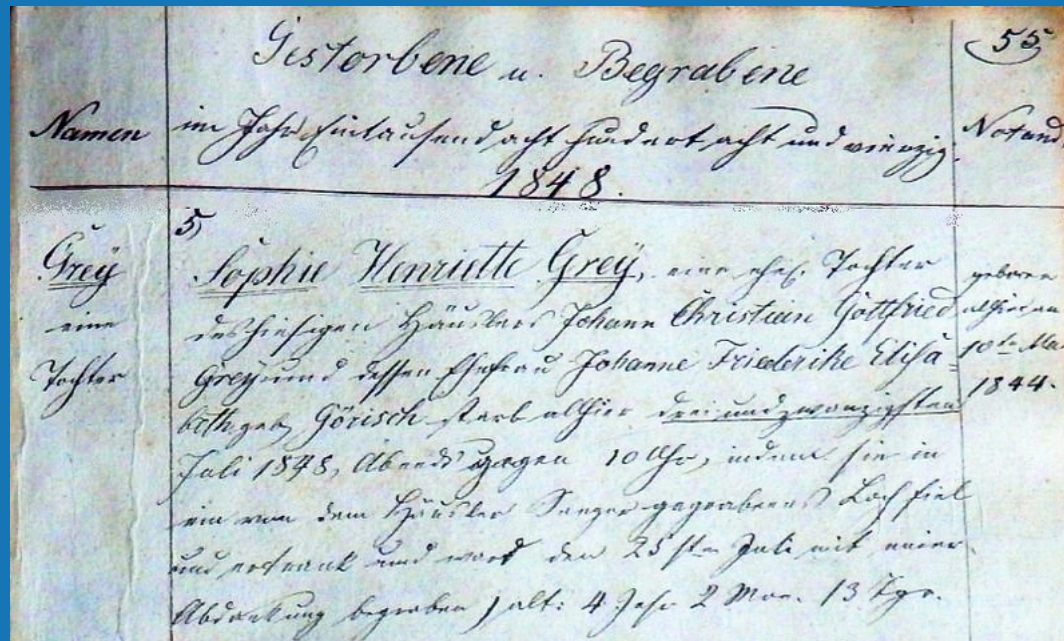 55
Gestorbene u. Begrabene
Namen
im Jahr Eintausend acht hundert acht und vierzig.
Notand.
1848.
5)
Greÿ
eine
Tochter
Sophie Henriette Greÿ, eine ehel. Tochter
des hiesigen Häuslers Johann Christian Gottfried
Greÿ und dessen Ehefrau Johanne Friederike Elisa=
beth geb. Görisch starb allhier drei und zwanzigsten
Juli 1848, Abends gegen 10 Uhr, indem sie in
ein von dem Häusler gegrabenes Loch fiel
und ertrank und ward den 25sten Juli mit einer
Abdankung begraben, alt: 4 Jahr 2 Mon. 13 Tge.
geboren
allhier am
10te Mai
1844.